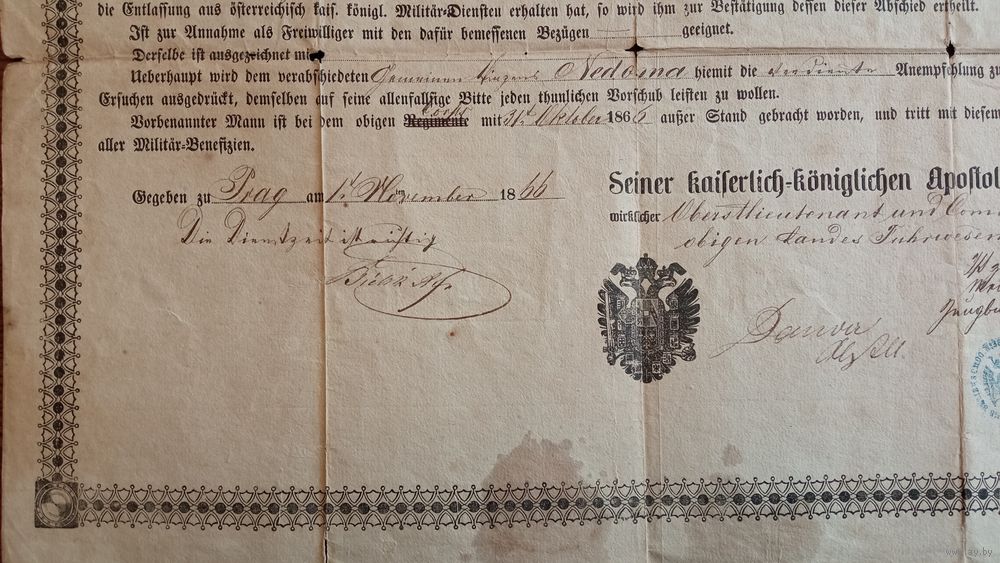 die Entlassung aus österreichisch kais. königl. Militär-Diensten erhalten hat, so wird ihm zur Bestätigung dessen dieser Abschied ertheilt.
Ist zur Annahme als Freiwilliger mit den dafür bemessenen Bezügen geeignet.
Derselbe ist ausgezeichnet mit
Ueberhaupt wird dem verabschiedeten Gemeinen Nedoma hiemit die verdiente Anempfehlung zu
Ersuchen ausgedrückt, demselben auf seine allenfallsige Bitte jeden thunlichen Vorschub leisten zu wollen.
Vorbenannter Mann ist bei dem obigen Regimente mit 31t Oktober 1866 außer Stand gebracht worden, und tritt mit diesem
aller Militär-Benefizien.
Gegeben zu Prag am 1t November 1866
Die Dienstzeit ist richtig
Seiner kaiserlich-königlichen Apostol
wirklicher Oberstlieutenant und Com
obigen Landes Fuhrwesen
www.ay.by